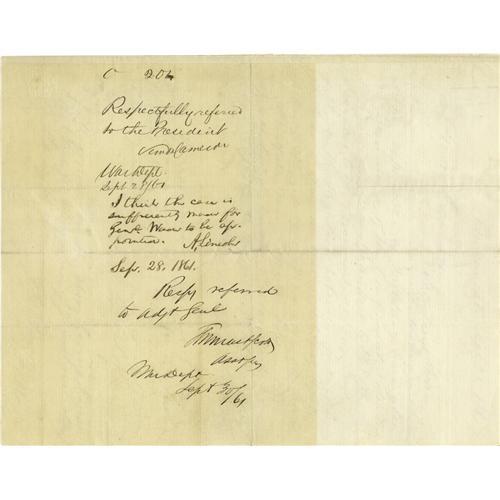 C 204
Respectfully referred
to the President
Simon Cameron
War Dept.
Sept 28/61
I think the case is
sufficiently made for
Genl. to be ap-
pointed. A. Lincoln
Sep. 28, 1861.
Respy referred
to Adjt Genl
Thomas A Scott
Asst Secy
War Dept
Sept 30/61